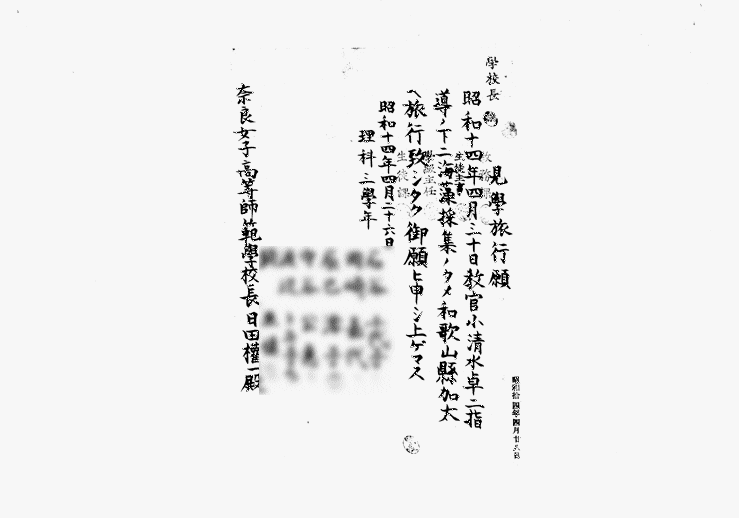 昭和拾四年四月廿八日
見學旅行願
學校長
教務課
生徒主事
學級主任
生徒課
昭和十四年四月三十日教官小清水卓二指
導ノ下ニ海藻採集ノタメ和歌山縣加太
ヘ旅行致シタク御願ヒ申シ上ゲマス
昭和十四年四月二十六日
理科三學年
奈良女子高等師範學校長日田權一殿